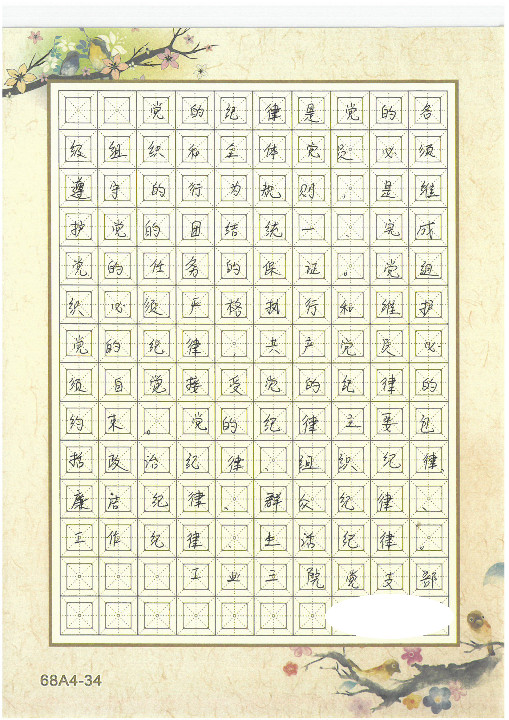 党的纪律是党的各
级组织和全体党员必须
遵守的行为规则,是维
护党的团结统一、完成
党的任务的保证。党组
织必须严格执行和维护
党的纪律,共产党员必
须自觉接受党的纪律的
约束。党的纪律主要包
括政治纪律、组织纪律、
廉洁纪律、群众纪律、
工作纪律、生活纪律。
工业主院党支部
68A4-34